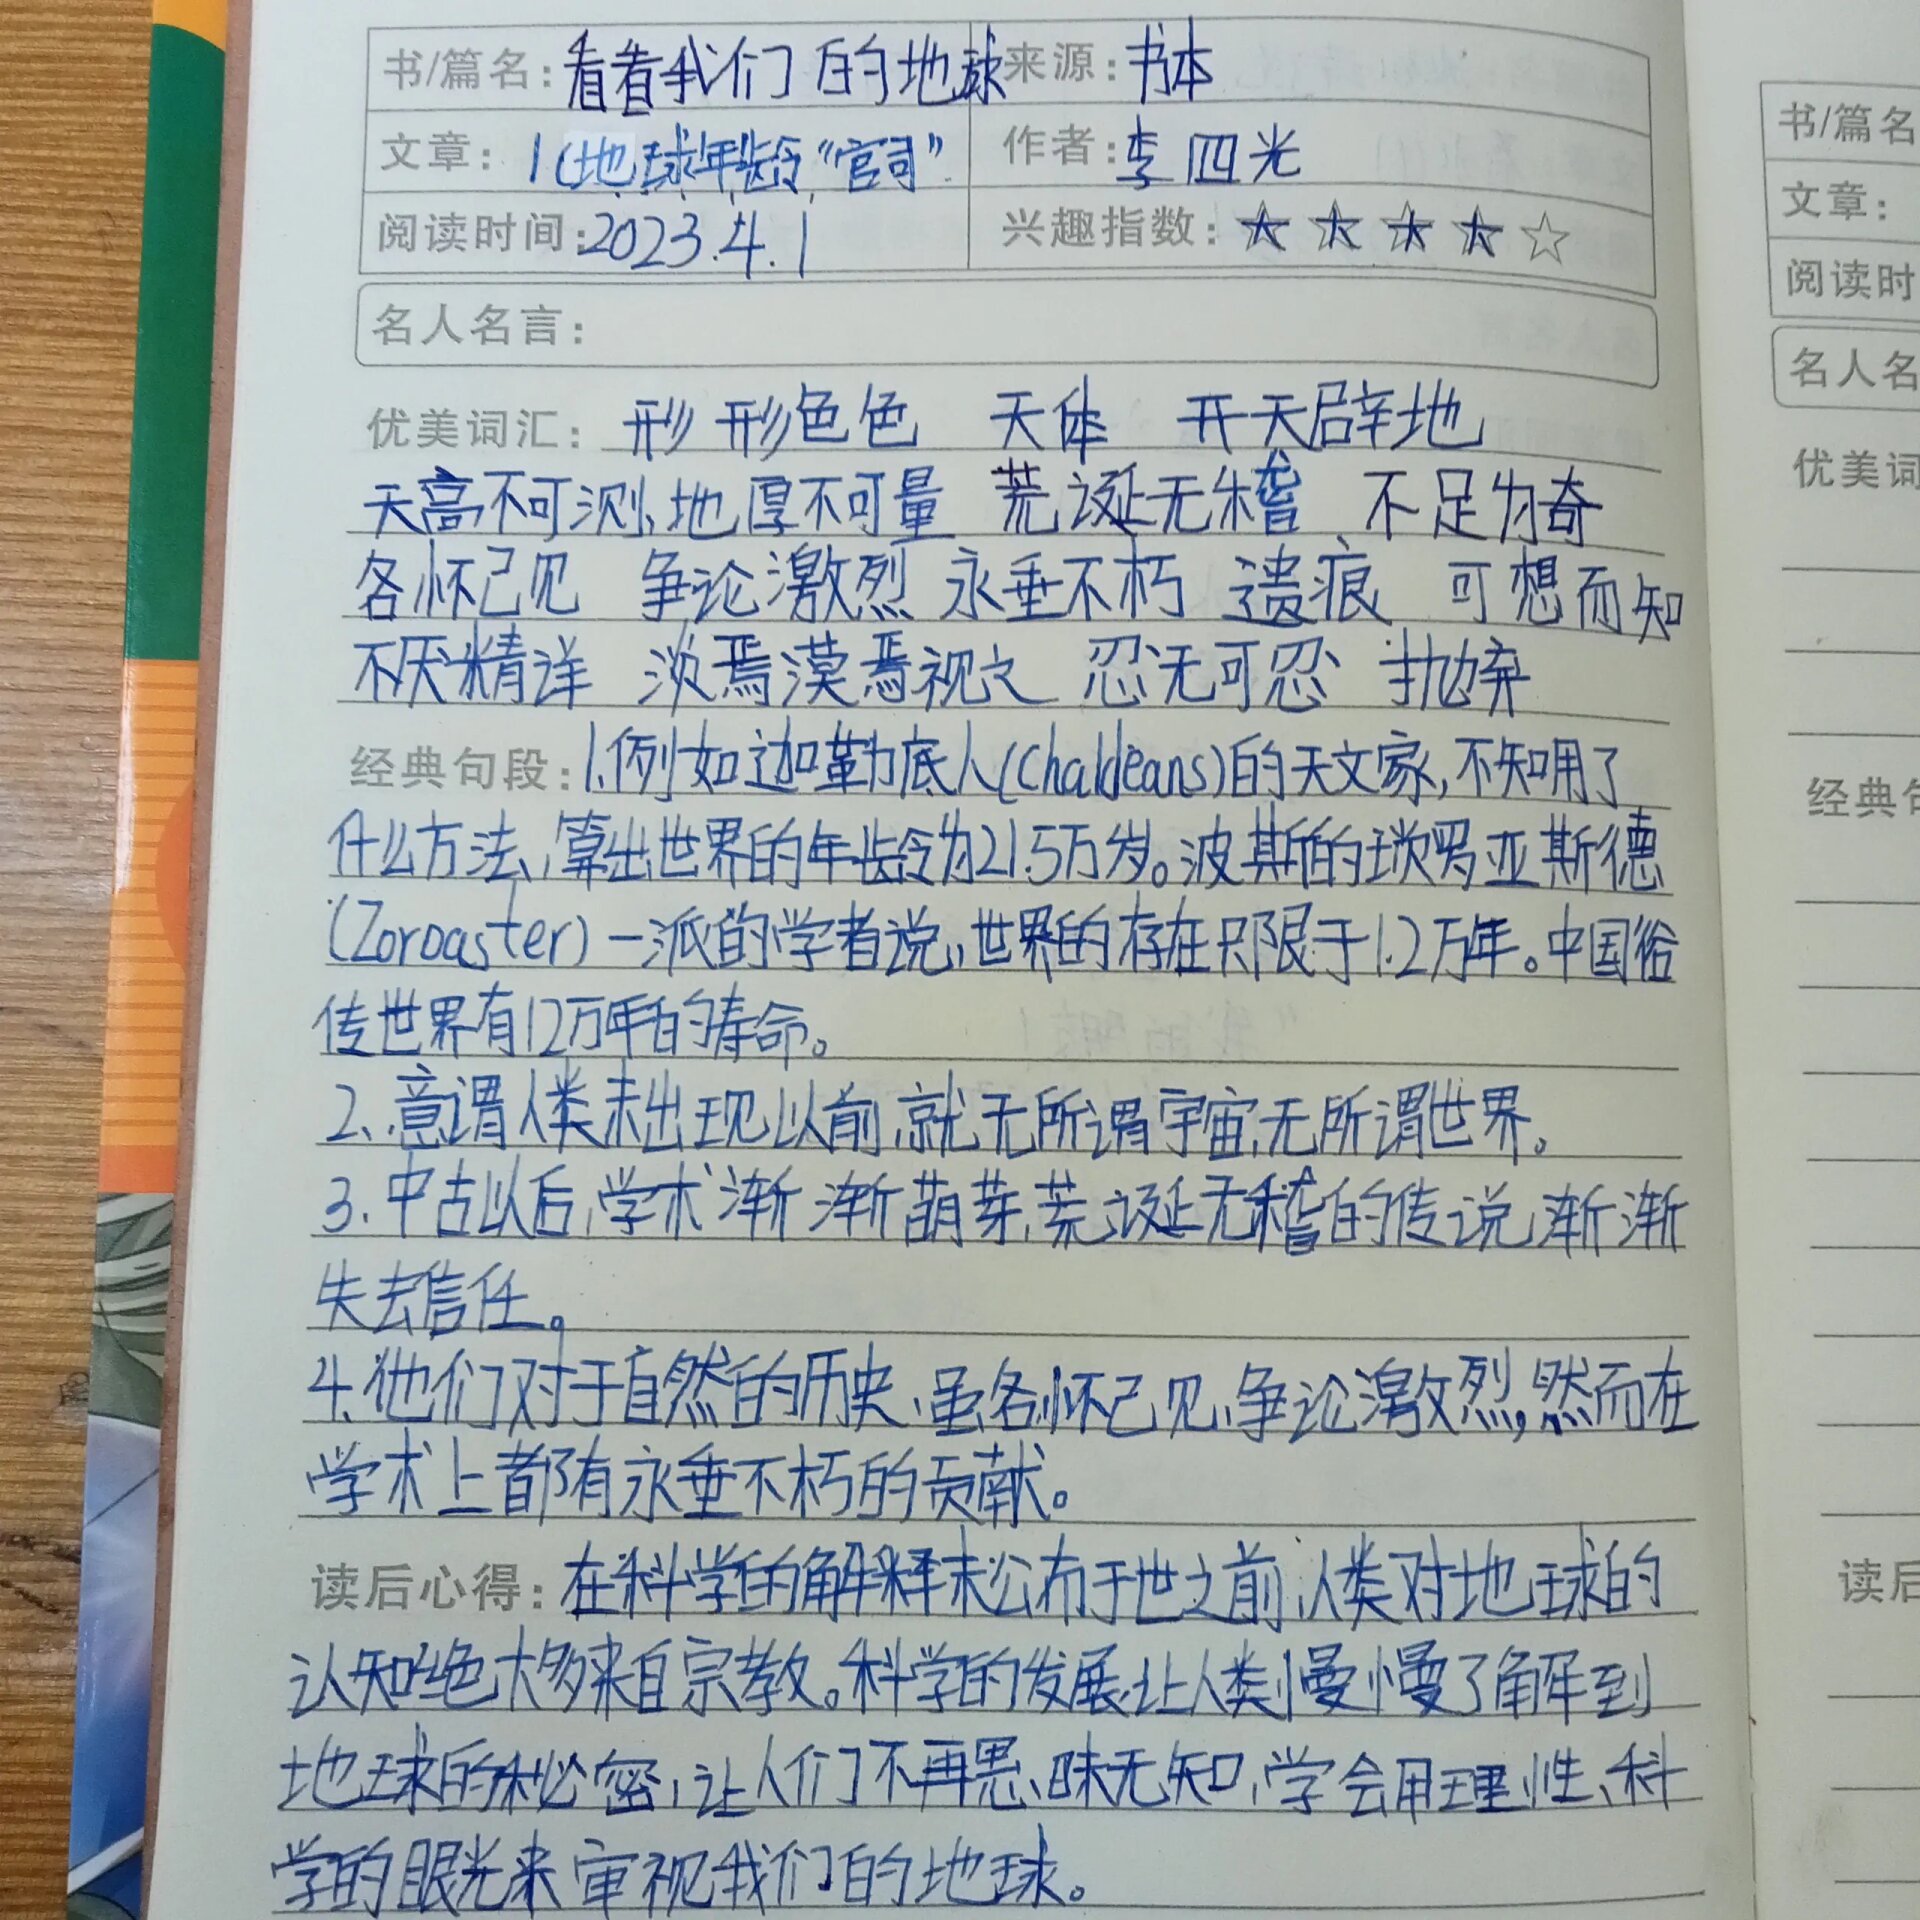 书/篇名：看看我们的地球 来源：书本
文章：1《地球年龄"官司" 作者：李四光
阅读时间：2023.4.1 兴趣指数：★★★★☆
名人名言：
优美词汇：形形色色 天体 开天辟地
天高不可测、地厚不可量 荒诞无稽 不足为奇
各怀己见 争论激烈 永垂不朽 遗痕 可想而知
不厌精详 淡焉漠焉视之 忍无可忍 抛弃
经典句段：1.例如迦勒底人(Chaldeans)的天文家,不知用了
什么方法、算出世界的年龄为21.5万岁。波斯的琐罗亚斯德
(Zoroaster)一派的学者说,世界的存在只限于1.2万年。中国俗
传世界有12万年的寿命。
2、意谓人类未出现以前,就无所谓宇宙,无所谓世界。
3.中古以后,学术渐渐萌芽,荒诞无稽的传说,渐渐
失去信任。
4.他们对于自然的历史,虽各怀己见,争论激烈,然而在
学术上都有永垂不朽的贡献。
读后心得：在科学的解释未公布于世之前,人类对地球的
认知绝大多来自宗教。科学的发展,让人类慢慢了解到
地球的秘密,让人们不再愚昧无知,学会用理性、科
学的眼光来审视我们的地球。
书/篇名
文章：
阅读时
名人名
优美词
经典句
读后